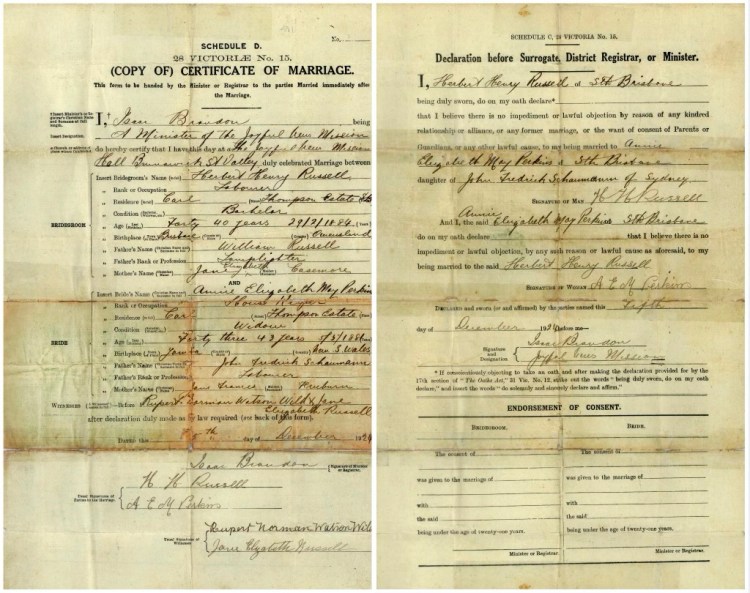 No.
SCHEDULE D.
28 VICTORIÆ No. 15.
(COPY OF) CERTIFICATE OF MARRIAGE.
This form to be handed by the Minister or Registrar to the parties Married immediately after
the Marriage.
I, Isaac Brandon being
A Minister of the Joyful News Mission
do hereby certify that I have this day at The Joyful News Mission
Hall Brunswick St Valley duly celebrated Marriage between
Insert Bridegroom's Name Herbert Henry Russell
Rank or Occupation Labourer
Residence Earl Thompson Estate
Condition Bachelor
BRIDEGROOM
Age Forty 40 years 29/2/1884
Birthplace Brisbane Queensland
Father's Name William Russell
Father's Rank or Profession Lamplighter
Mother's Name Jane
AND
Insert Bride's Name Annie Elizabeth May Perkins
Rank or Occupation House Keeper
Residence Earl Thompson Estate
Condition Widow
BRIDE
Age Forty three 43 years
Birthplace New S. Wales
Father's Name John Fredrick Schaumann
Father's Rank or Profession Labourer
Mother's Name Jane
Witnesses Before Rupert Norman Watson Wild & Jane
Elizabeth Russell
after declaration duly made as by law required (see back of this form).
Dated this day of December 1924
Isaac Brandon
H H Russell
A E M Perkins
Rupert Norman Watson Wild
Jane Elizabeth Russell
SCHEDULE C, 28 VICTORIA No. 15.
Declaration before Surrogate, District Registrar, or Minister.
I, Herbert Henry Russell of Sth Brisbane
being duly sworn, do on my oath declare*
that I believe there is no impediment or lawful objection by reason of any kindred
relationship or alliance, or any former marriage, or the want of consent of Parents or
Guardians, or any other lawful cause, to my being married to Annie
Elizabeth May Perkins of Sth Brisbane
daughter of John Fredrick Schaumann of Sydney
SIGNATURE OF MAN H H Russell
Annie
And I, the said Elizabeth May Perkins Sth Brisbane
do on my oath declare that I believe there is no
impediment or lawful objection, by any such reason or lawful cause as aforesaid, to my
being married to the said Herbert Henry Russell
SIGNATURE OF WOMAN A E M Perkins
DECLARED and sworn (or affirmed) by the parties named this Fifth
day of December 1924 before me—
Signature
and
Designation
Isaac Brandon
Joyful News Mission
*If conscientiously objecting to take an oath, and after making the declaration provided for by the
17th section of "The Oaths Act," 31 Vic. No. 12, strike out the words "being duly sworn, do on my oath
declare," and insert the words "do solemnly and sincerely declare and affirm."
ENDORSEMENT OF CONSENT.
BRIDEGROOM. BRIDE.
The consent of The consent of
was given to the marriage of was given to the marriage of
with with
the said the said
being under the age of twenty-one years. being under the age of twenty-one years.
Minister or Registrar. Minister or Registrar.